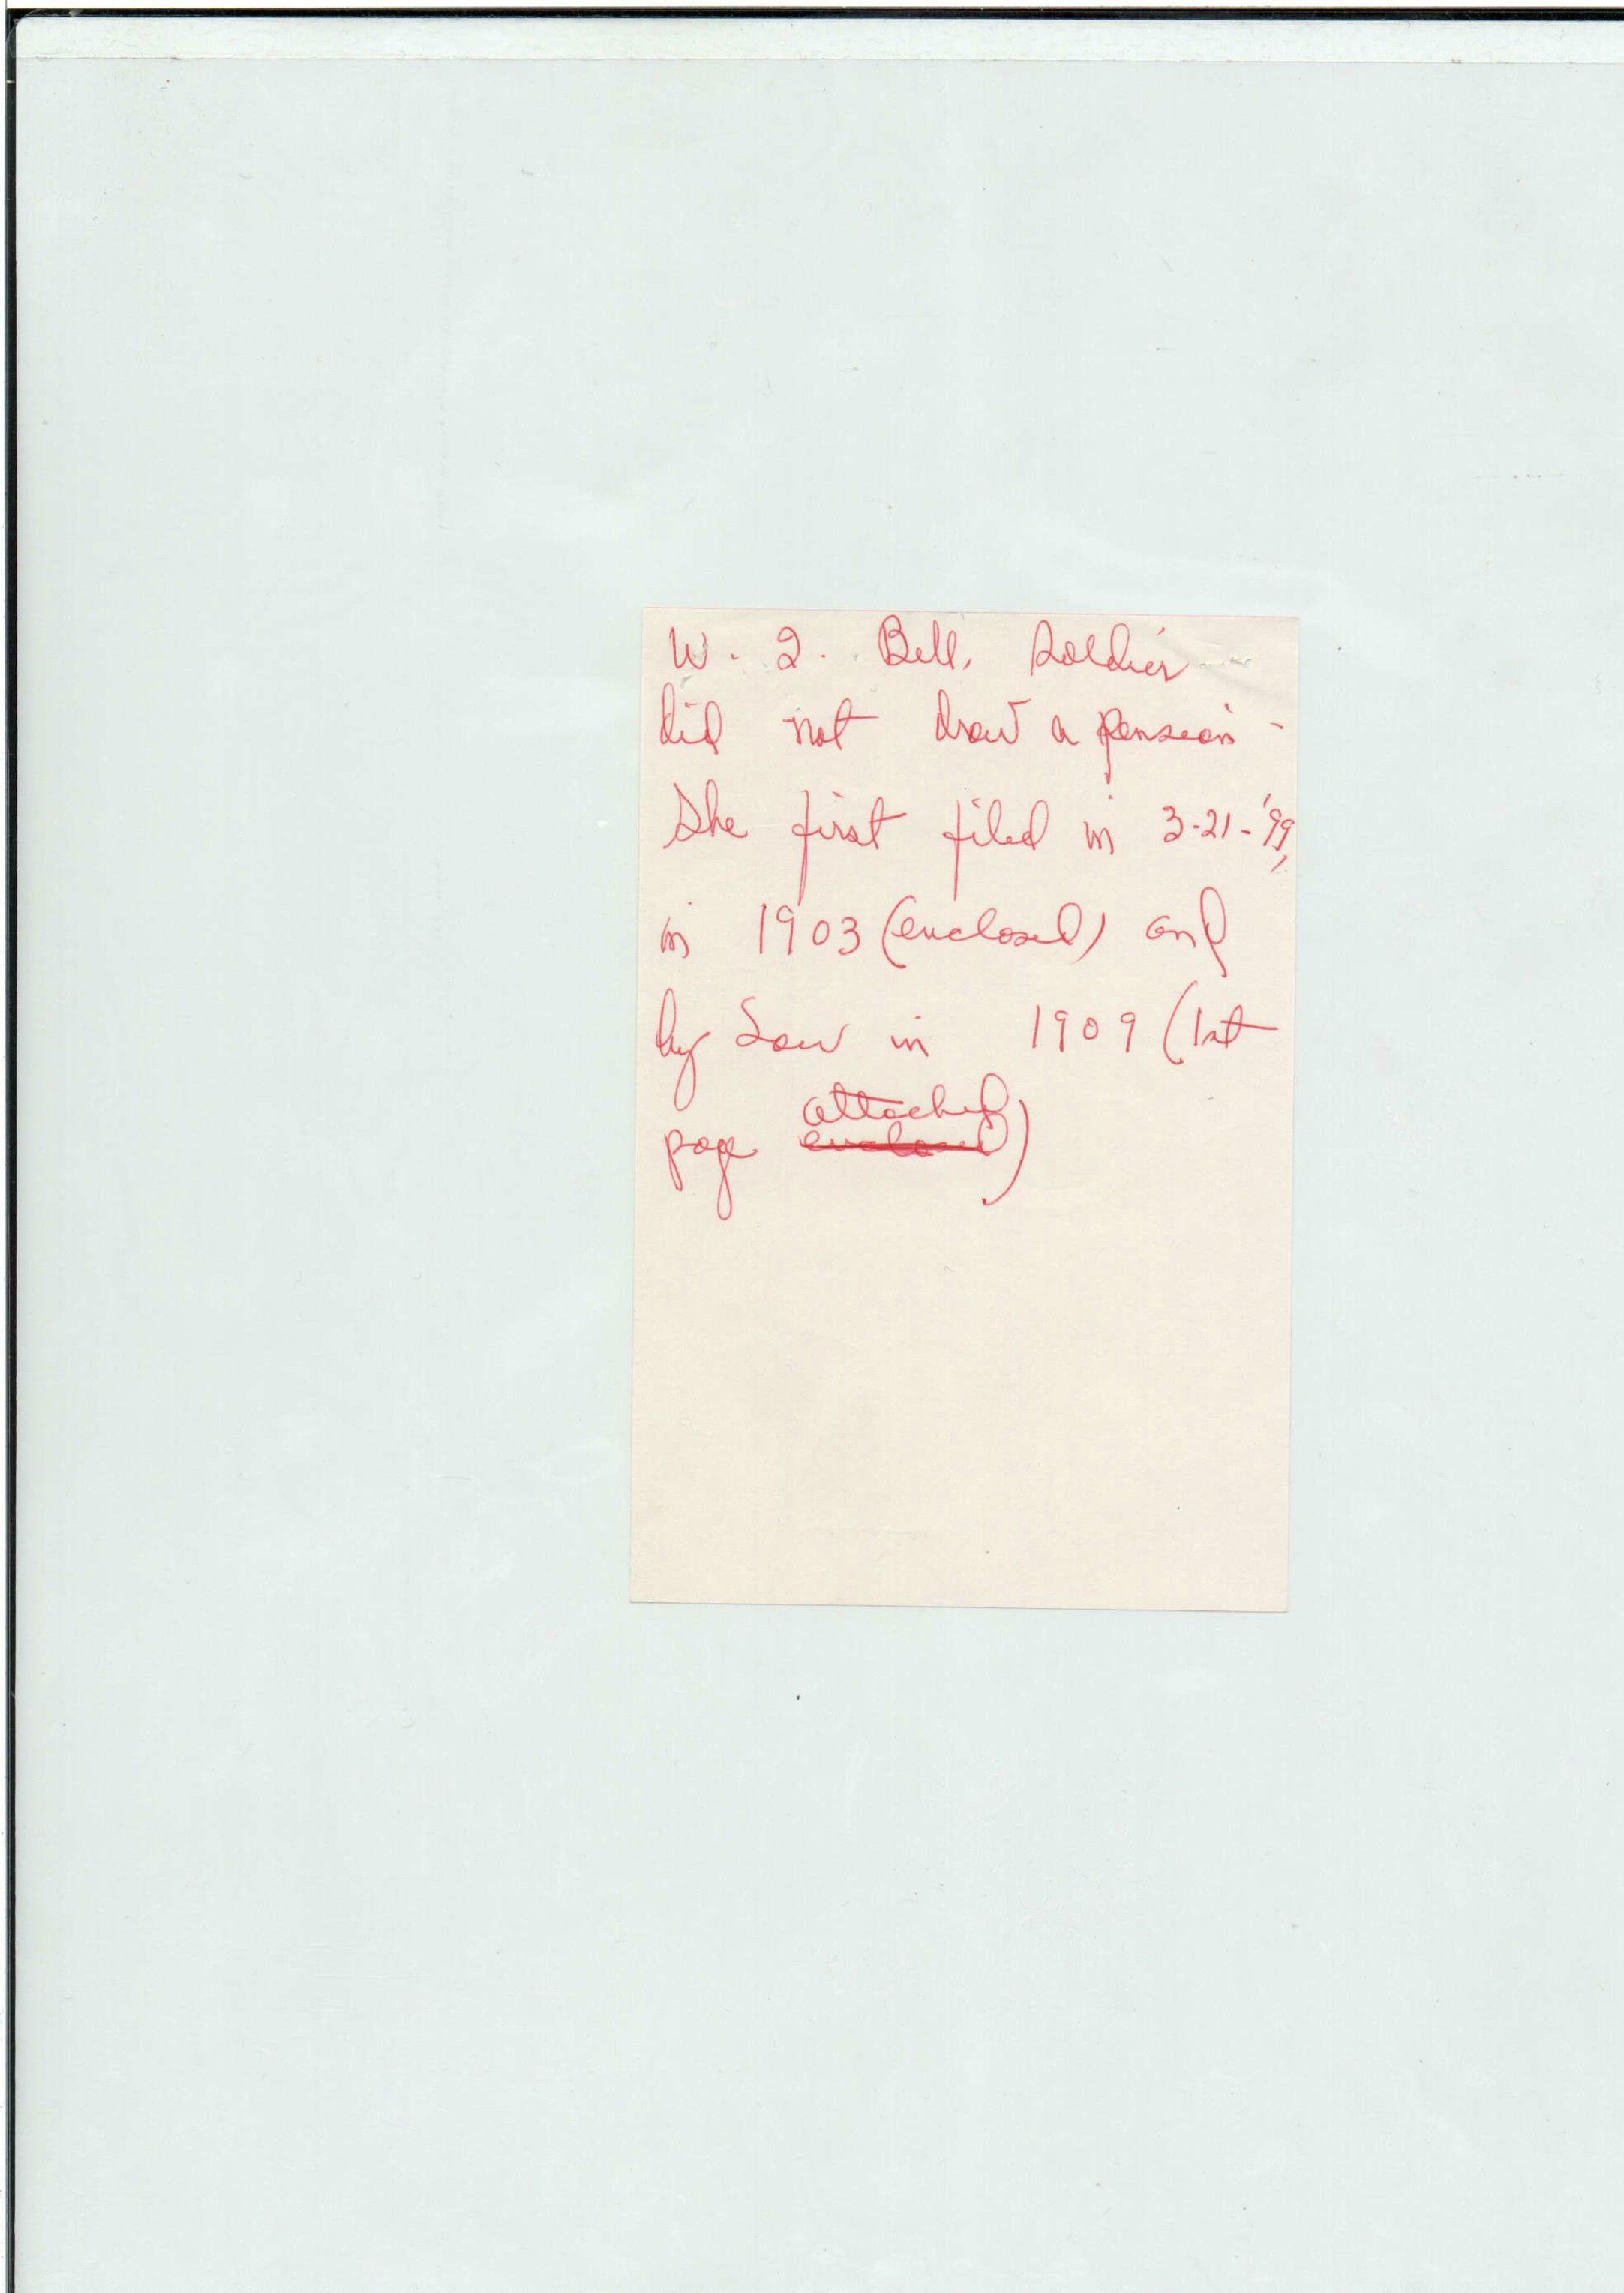 W. Q. Bell, Soldier
did not draw a pension -
She first filed in 3-21-'99,
in 1903 (enclosed) and
by Law in 1909 (1st
attached
page enclosed)